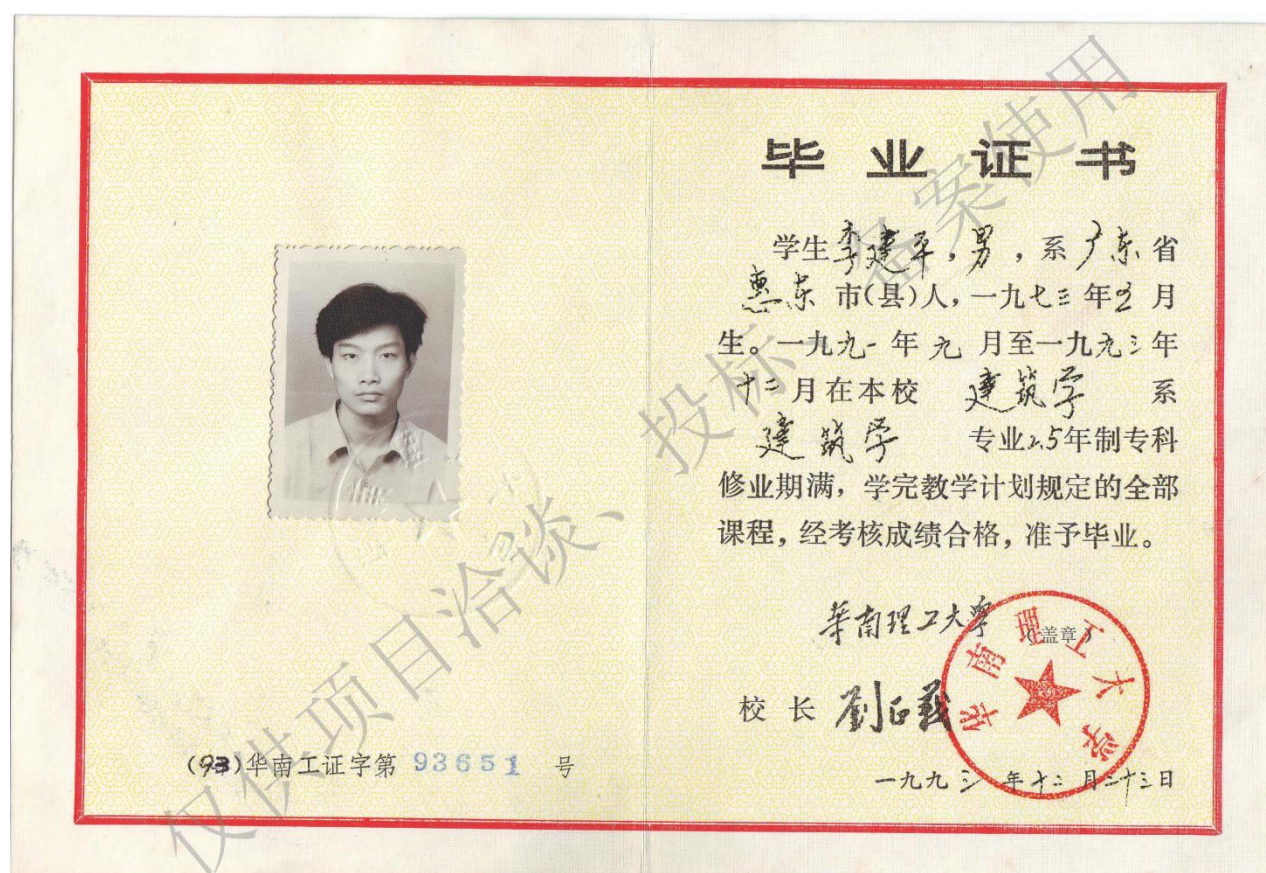 毕业证书
学生李建平,男,系广东省
惠东市(县)人,一九七三年 月
生。一九九一年九月至一九九三年
十二月在本校建筑学系
建筑学专业2.5年制专科
修业期满,学完教学计划规定的全部
课程,经考核成绩合格,准予毕业。
华南理工大学(盖章)
华南理工大学
校长 刘正義
一九九三年十二月二十三日
(93)华南工证字第 93651 号
仅供项目洽谈、投标、备案使用